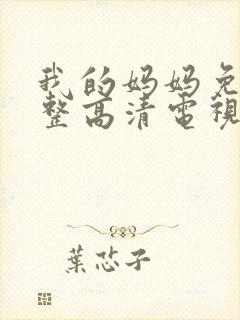 我的妈妈免
整高清電視
葉芯子